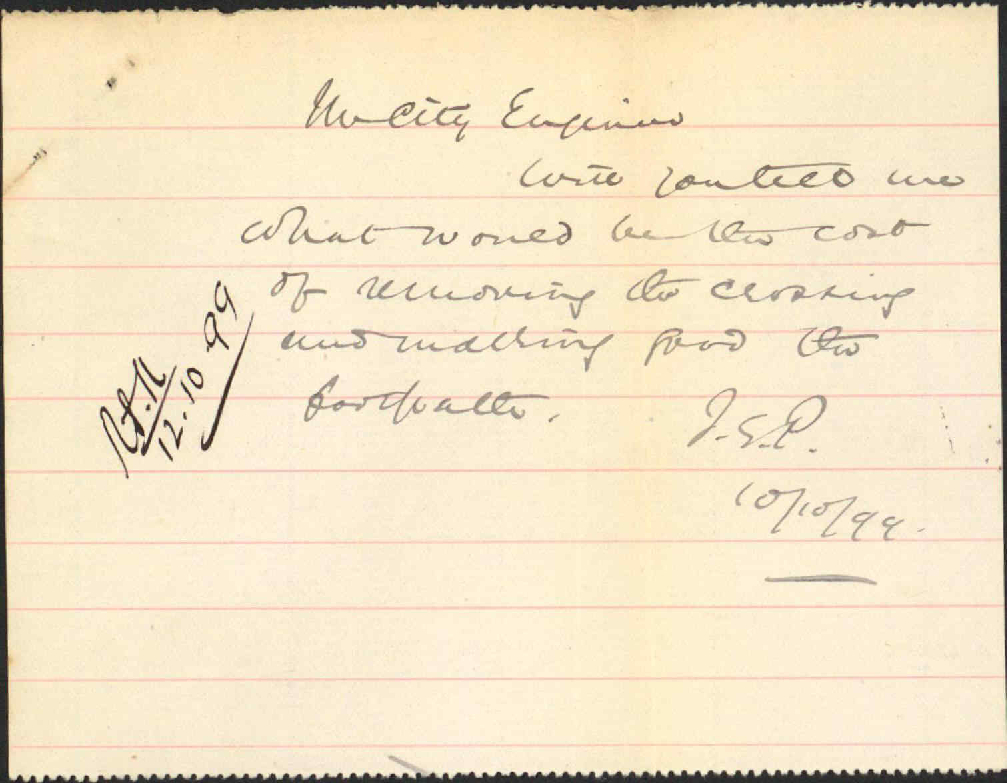 The City Engineer
Will you tell me
what would be the cost
of removing the crossing
and making good the
footpath.
J.E.P.
10/10/99.
12.10.99